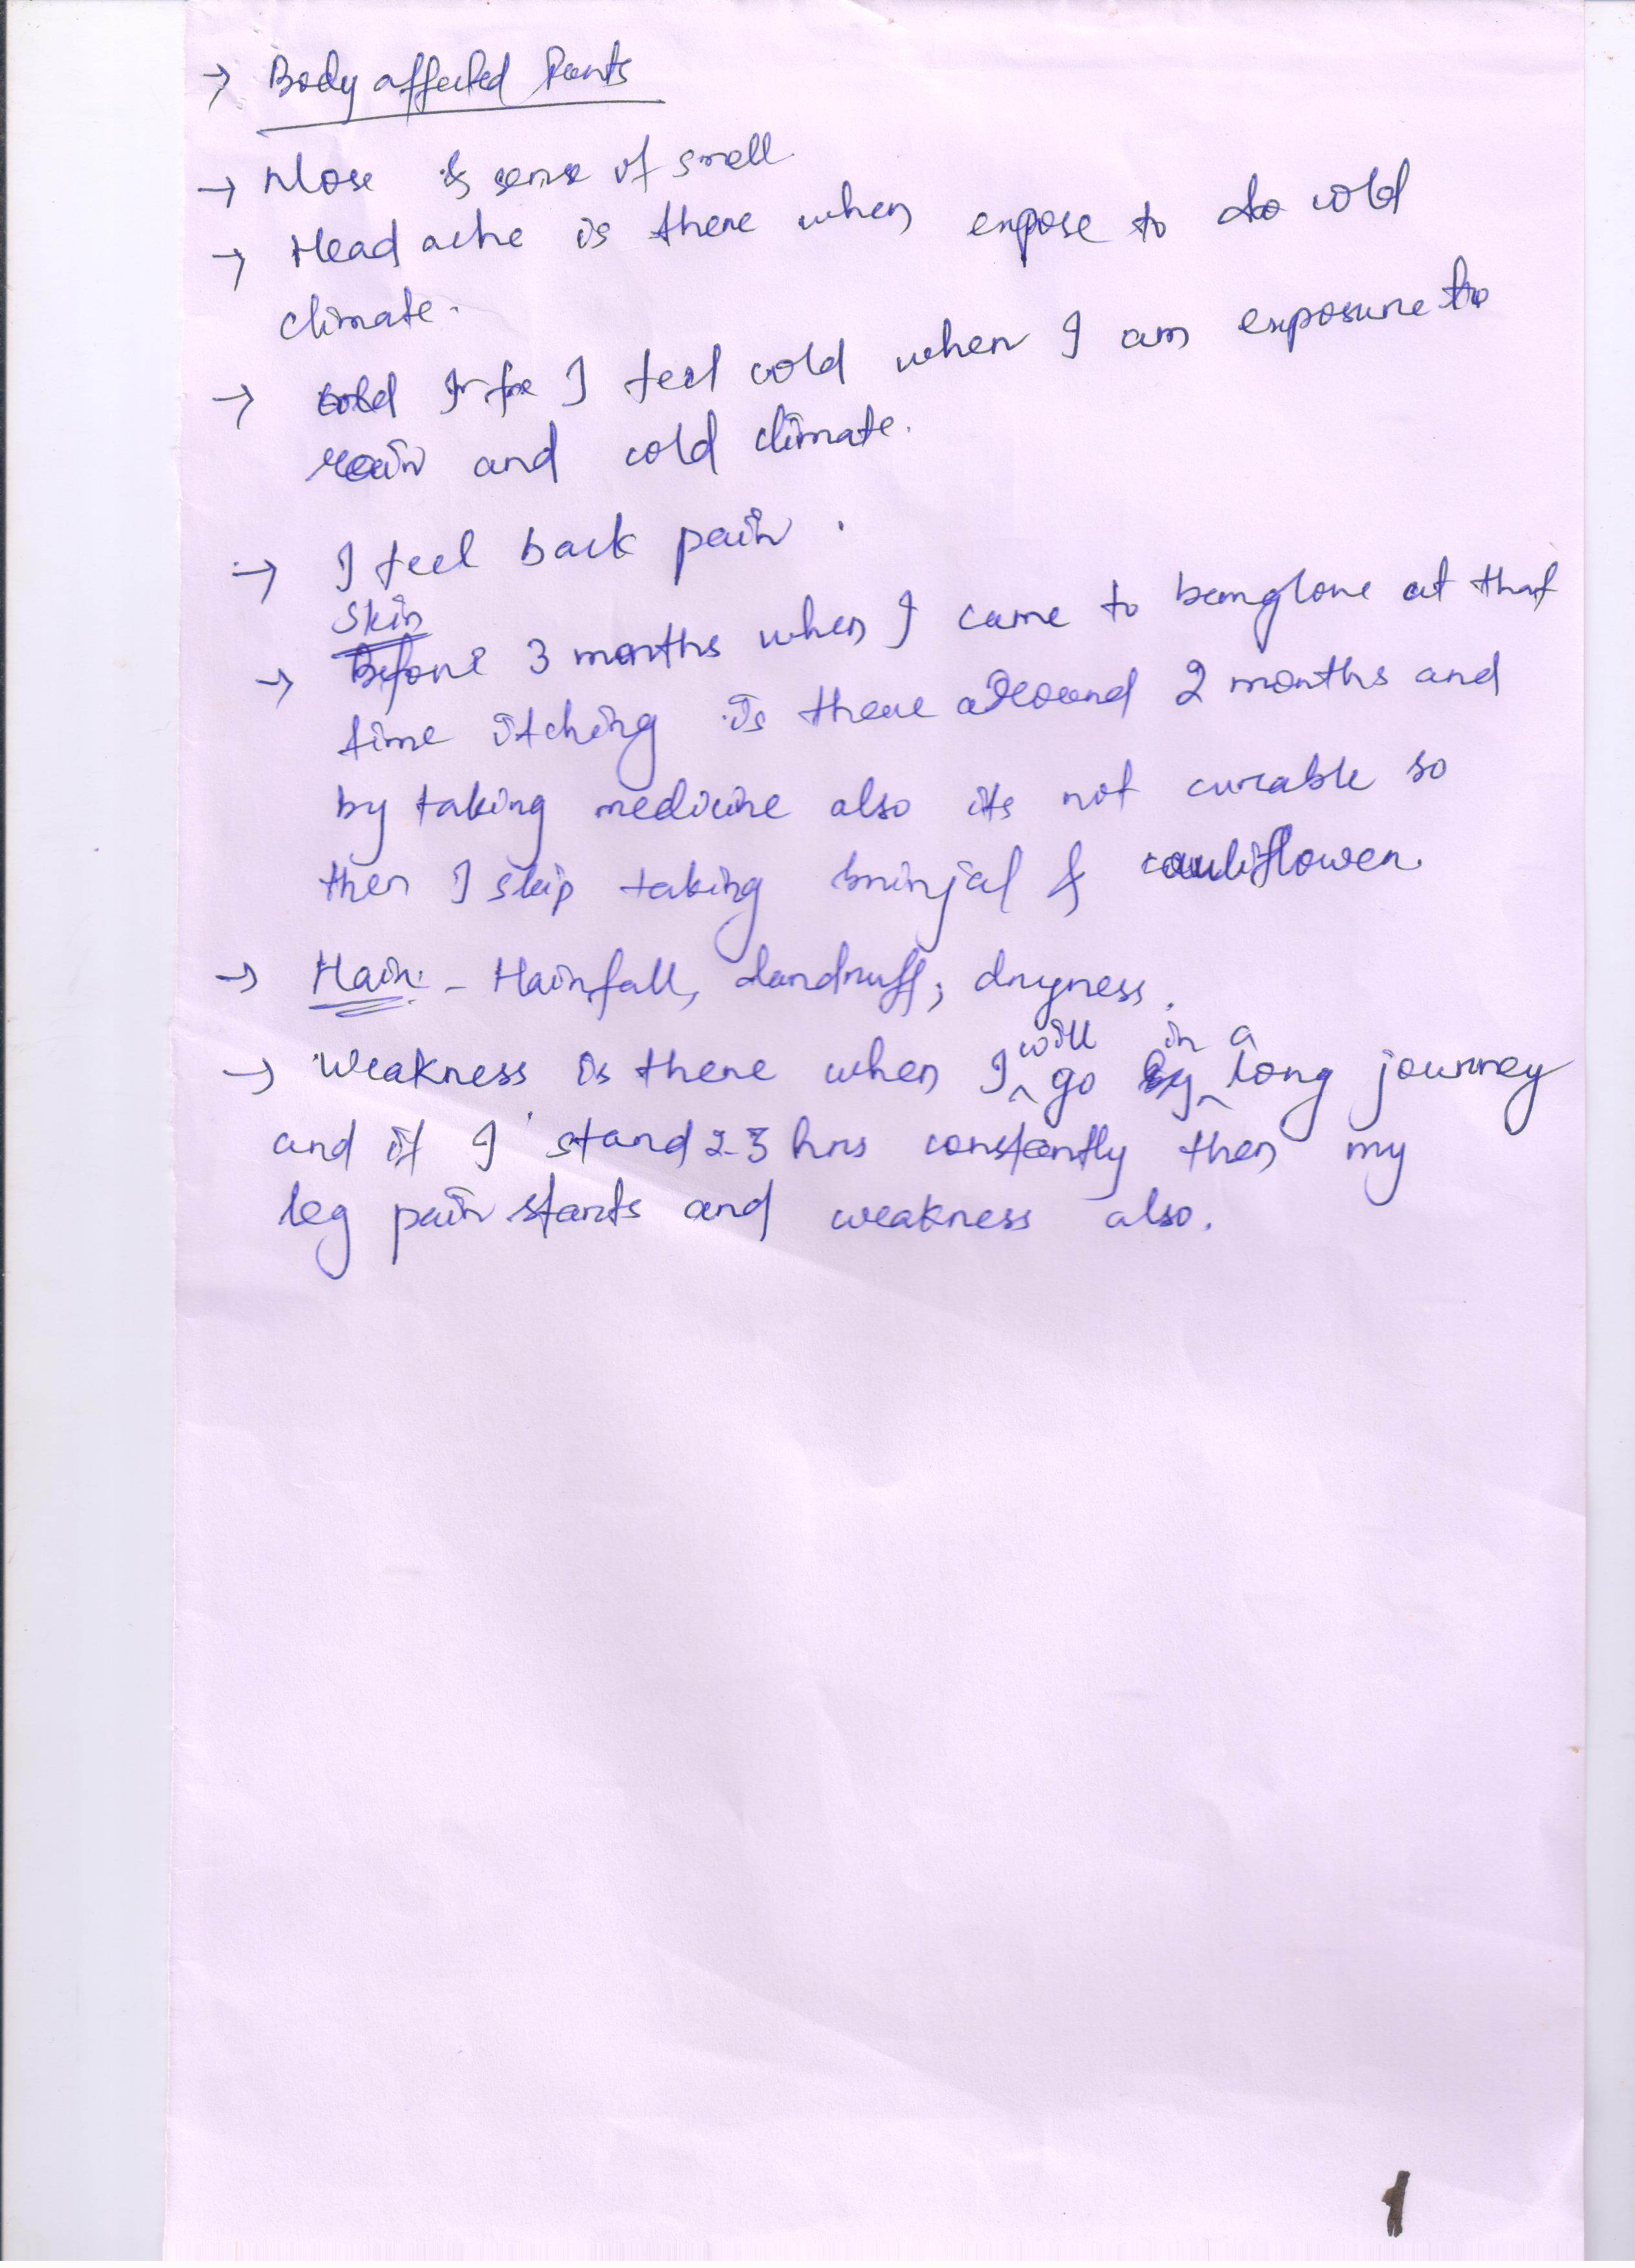 → Body affected Parts
→ Nose is sense of smell.
→ Head ache is there when expose to cold
climate.
→ I feel cold when I am exposure to
rain and cold climate.
→ I feel back pain.
Skin
→ Before 3 months when I came to banglore at that
time itching is there around 2 months and
by taking medicine also its not curable so
then I skip taking brinjal & cauliflower.
→ Hair: - Hairfall, dandruff, dryness.
→ Weakness is there when I will go in a long journey
and if I stand 2-3 hrs constantly then my
leg pain starts and weakness also.
1